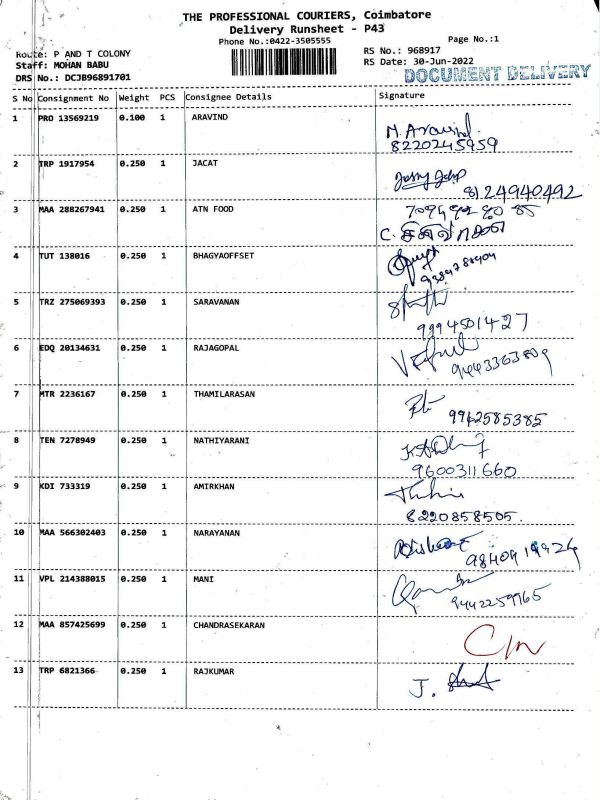 THE PROFESSIONAL COURIERS, Coimbatore
Delivery Runsheet - P43
Phone No.:0422-3505555
Page No.:1
Route: P AND T COLONY
RS No.: 968917
Staff: MOHAN BABU
RS Date: 30-Jun-2022
DRS No.: DCJB96891701
DOCUMENT DELIVERY
S No Consignment No Weight PCS Consignee Details Signature
1 PRO 13569219 0.100 1 ARAVIND N. Aravind
8220245959
2 TRP 1917954 0.250 1 JACAT
8124940492
3 MAA 288267941 0.250 1 ATN FOOD
C.
4 TUT 138016 0.250 1 BHAGYAOFFSET
5 TRZ 275069393 0.250 1 SARAVANAN
9994501427
6 EDQ 20134631 0.250 1 RAJAGOPAL
9443363809
7 MTR 2236167 0.250 1 THAMILARASAN
9962585385
8 TEN 7278949 0.250 1 NATHIYARANI
9600311660
9 KDI 733319 0.250 1 AMIRKHAN
8220858505.
10 MAA 566302403 0.250 1 NARAYANAN
11 VPL 214388015 0.250 1 MANI
9442259965
12 MAA 857425699 0.250 1 CHANDRASEKARAN
13 TRP 6821366 0.250 1 RAJKUMAR J.